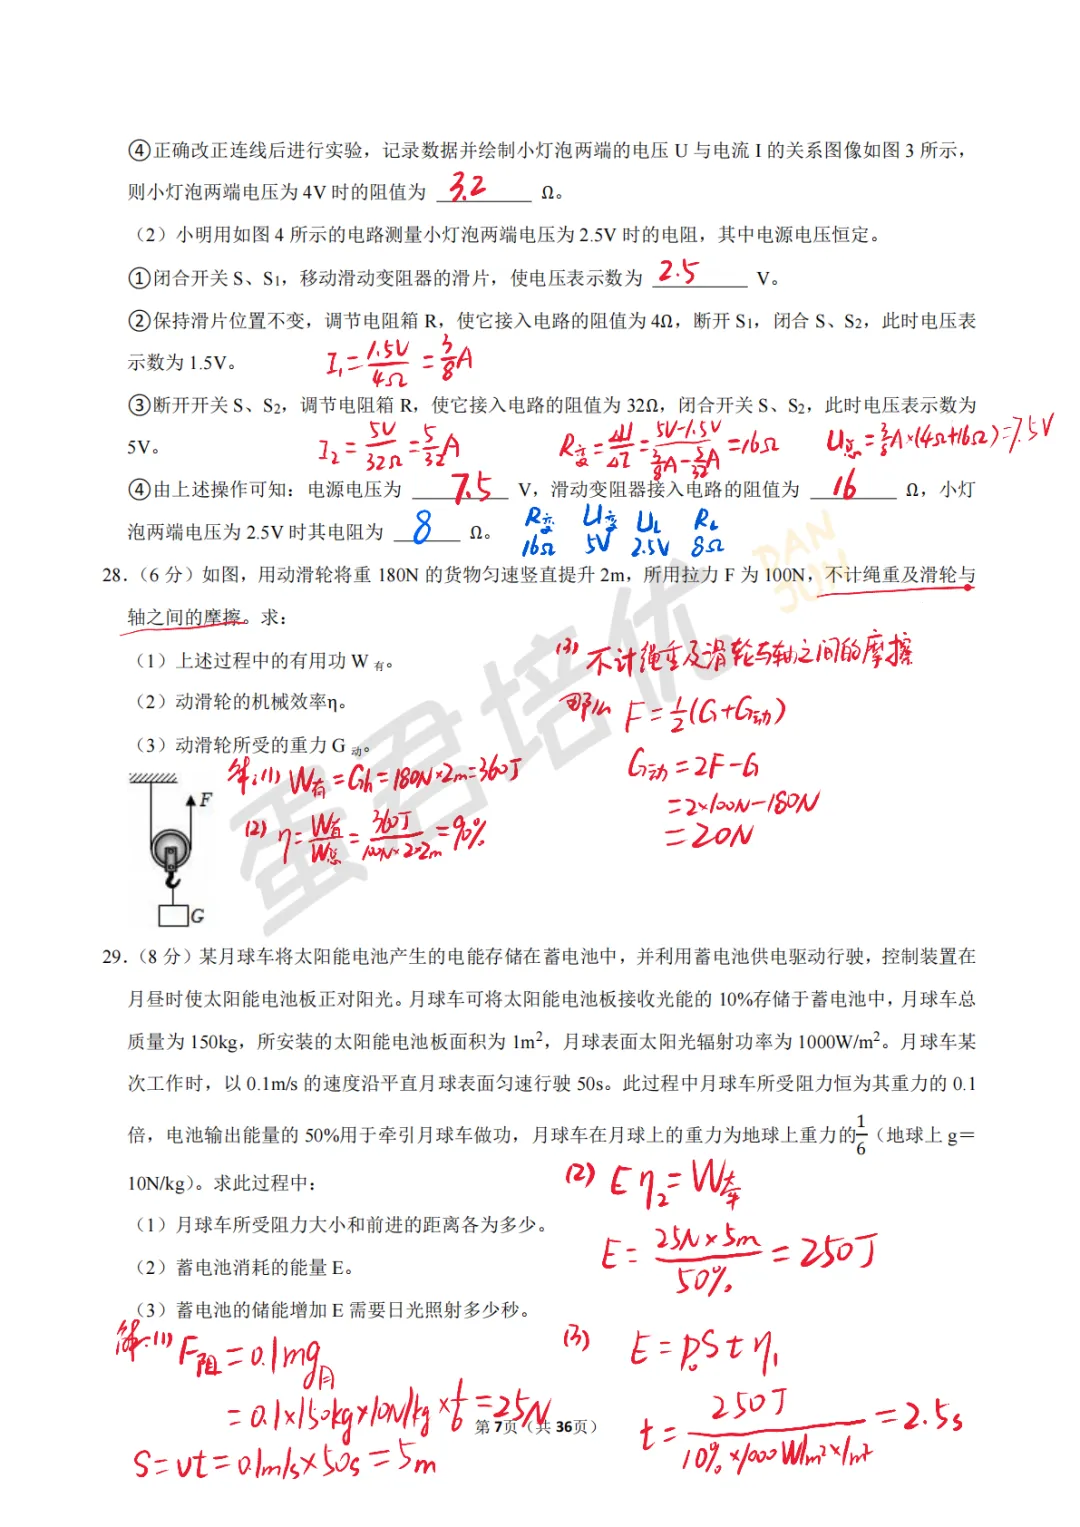 ④正确改正连线后进行实验，记录数据并绘制小灯泡两端的电压 U 与电流 I 的关系图像如图 3 所示，
则小灯泡两端电压为 4V 时的阻值为 3.2 Ω。
（2）小明用如图 4 所示的电路测量小灯泡两端电压为 2.5V 时的电阻，其中电源电压恒定。
①闭合开关 S、S₁，移动滑动变阻器的滑片，使电压表示数为 2.5 V。
②保持滑片位置不变，调节电阻箱 R，使它接入电路的阻值为 4Ω，断开 S₁，闭合 S、S₂，此时电压表
示数为 1.5V。 I₁=1.5V/4Ω=3/8A
③断开开关 S、S₂，调节电阻箱 R，使它接入电路的阻值为 32Ω，闭合开关 S、S₂，此时电压表示数为
5V。 I₂=5V/32Ω=5/32A R变=ΔU/ΔI=(5V-1.5V)/(3/8A-5/32A)=16Ω U总=3/8A×(4Ω+16Ω)=7.5V
④由上述操作可知：电源电压为 7.5 V，滑动变阻器接入电路的阻值为 16 Ω，小灯
泡两端电压为 2.5V 时其电阻为 8 Ω。 R变 U变 UL RL
16Ω 5V 2.5V 8Ω
DAN
JUN
28．（6 分）如图，用动滑轮将重 180N 的货物匀速竖直提升 2m，所用拉力 F 为 100N，不计绳重及滑轮与
轴之间的摩擦。求：
（1）上述过程中的有用功 W有。
（2）动滑轮的机械效率η。
（3）动滑轮所受的重力 G动。
(3) 不计绳重及滑轮与轴之间的摩擦
那么 F=½(G+G动)
G动=2F-G
=2×100N-180N
=20N
解:(1) W有=Gh=180N×2m=360J
(2) η=W有/W总=360J/(100N×2×2m)=90%
F
G
蛋君培优
29．（8 分）某月球车将太阳能电池产生的电能存储在蓄电池中，并利用蓄电池供电驱动行驶，控制装置在
月昼时使太阳能电池板正对阳光。月球车可将太阳能电池板接收光能的 10%存储于蓄电池中，月球车总
质量为 150kg，所安装的太阳能电池板面积为 1m²，月球表面太阳光辐射功率为 1000W/m²。月球车某
次工作时，以 0.1m/s 的速度沿平直月球表面匀速行驶 50s。此过程中月球车所受阻力恒为其重力的 0.1
倍，电池输出能量的 50%用于牵引月球车做功，月球车在月球上的重力为地球上重力的1/6（地球上 g＝
10N/kg）。求此过程中：
（1）月球车所受阻力大小和前进的距离各为多少。
（2）蓄电池消耗的能量 E。
（3）蓄电池的储能增加 E 需要日光照射多少秒。
(2) Eη₂=W牵
E=25N×5m/50%=250J
解:(1) F阻=0.1mg月
=0.1×150kg×10N/kg×1/6=25N
S=vt=0.1m/s×50s=5m
(3) E=P₀Stη₁
t=250J/(10%×1000W/m²×1m²)=2.5s
第 7页（共 36页）